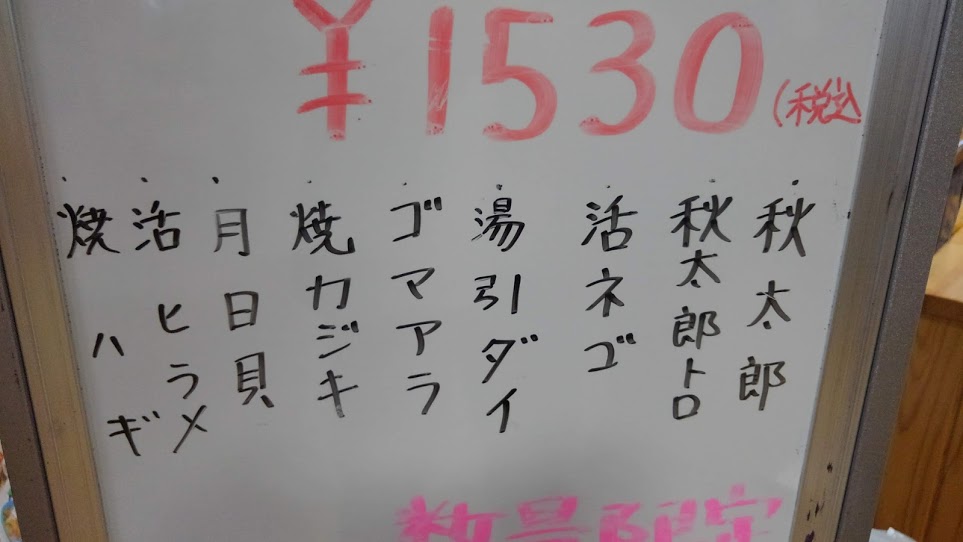 ¥1530(税込
・秋太郎
・秋太郎トロ
・活ネゴ
・湯引ダイ
・ゴマアラ
・焼カジキ
・月日貝
・活ヒラメ
・焼ハギ
数量限定